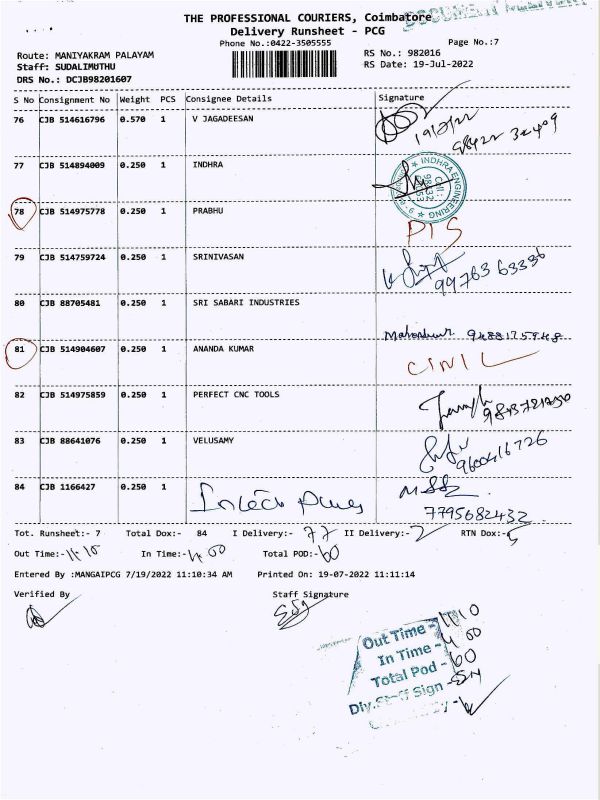 THE PROFESSIONAL COURIERS, Coimbatore
Delivery Runsheet - PCG
Phone No.:0422-3505555
Page No.:7
Route: MANIYAKRAM PALAYAM
RS No.: 982016
Staff: SUDALIMUTHU
RS Date: 19-Jul-2022
DRS No.: DCJB98201607
S No Consignment No Weight PCS Consignee Details Signature
76 CJB 514616796 0.570 1 V JAGADEESAN
19/7/22
77 CJB 514894009 0.250 1 INDHRA
INDHRA ENGINEERING
78 CJB 514975778 0.250 1 PRABHU
79 CJB 514759724 0.250 1 SRINIVASAN
99763 63336
80 CJB 88705481 0.250 1 SRI SABARI INDUSTRIES
9488175948
81 CJB 514904607 0.250 1 ANANDA KUMAR
82 CJB 514975859 0.250 1 PERFECT CNC TOOLS
83 CJB 88641076 0.250 1 VELUSAMY
9600416726
84 CJB 1166427 0.250 1
7795682432
Tot. Runsheet:- 7 Total Dox:- 84 I Delivery:- 77 II Delivery:- 2 RTN Dox:- 5
Out Time:- 11.10 In Time:- 4.00 Total POD:- 60
Entered By :MANGAIPCG 7/19/2022 11:10:34 AM Printed On: 19-07-2022 11:11:14
Verified By Staff Signature
Out Time - 11.10
In Time - 4.00
Total Pod - 60
Dly.Staff Sign -